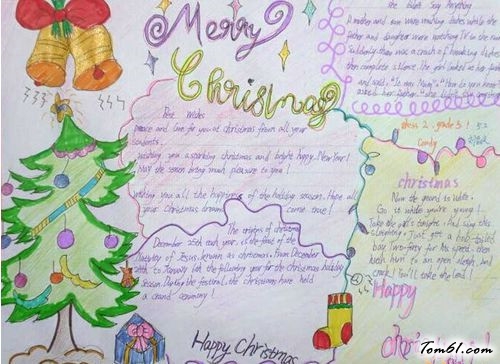 Merry
Christmas
Best wishes
peace and love for you at christmas from all your
students.
wishing you a sparkling christmas and bright happy New Year!
May the season bring much pleasure to you!
wishing you all the happiness of the holiday season. Hope all
your christmas dreams come true!
The origins of christmas
December 25th each year, is the feast of the
Nativity of Jesus, known as christmas. From December
24th to January 6th the following year for the christmas holiday
season. During the festival, the christians have held
a grand ceremony!
Happy Christmas
the
A mother and son were washing dishes while the
father and daughter were watching TV in the
Suddenly there was a crash of breaking dishes
then complete silence. The girl looked at her
and said, "It
asked her father. "She
class 2, grade 3!
Candy
christmas
Now the ground is white.
Go it while you're young!
Take the girls tonight. And sing this
Just get a bob-tailed
bay. Two-forty for his speed. then
hitch him to an open sleigh, and
crack! You'll take the lead!
Happy
Tom61.com